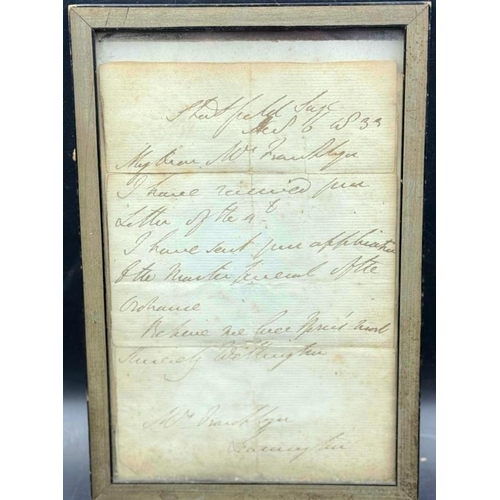 Strathfield Saye
6 1833
My dear Mrs Franklyn
I have received your
Letter of the 4th
I have sent your application
to the Master General of the
Ordnance
Believe me Yours most
Sincerely Wellington
Mrs Franklyn
Leamington